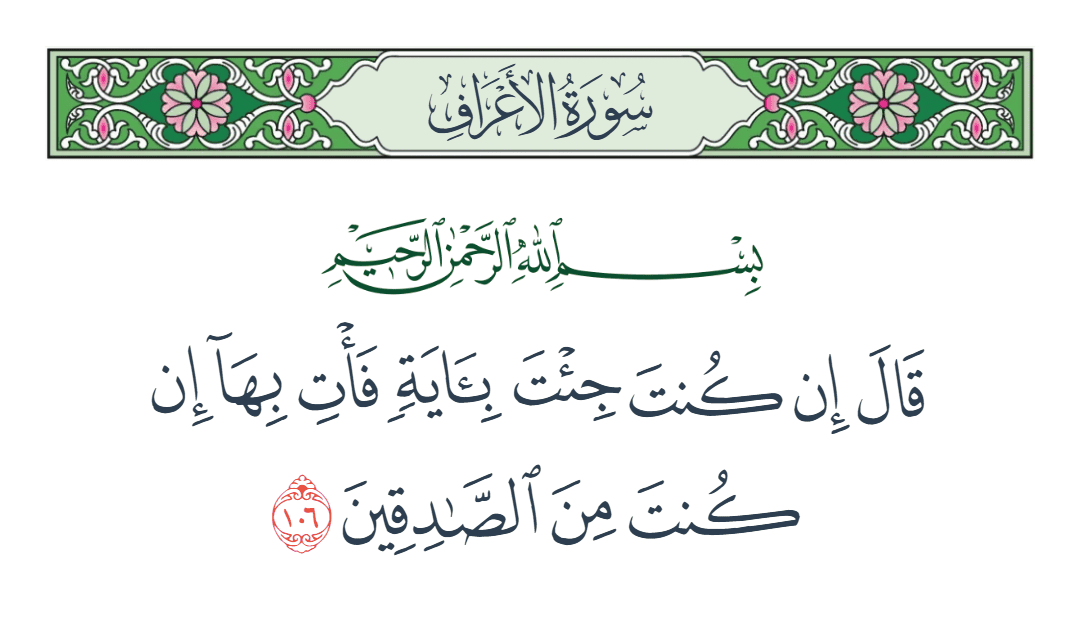 سُورَةُ الأَعْرَافِ
بِسْمِ ٱللَّهِ ٱلرَّحْمَٰنِ ٱلرَّحِيمِ
قَالَ إِن كُنتَ جِئْتَ بِـَٔايَةٍ فَأْتِ بِهَآ إِن
كُنتَ مِنَ ٱلصَّٰدِقِينَ ١٠٦